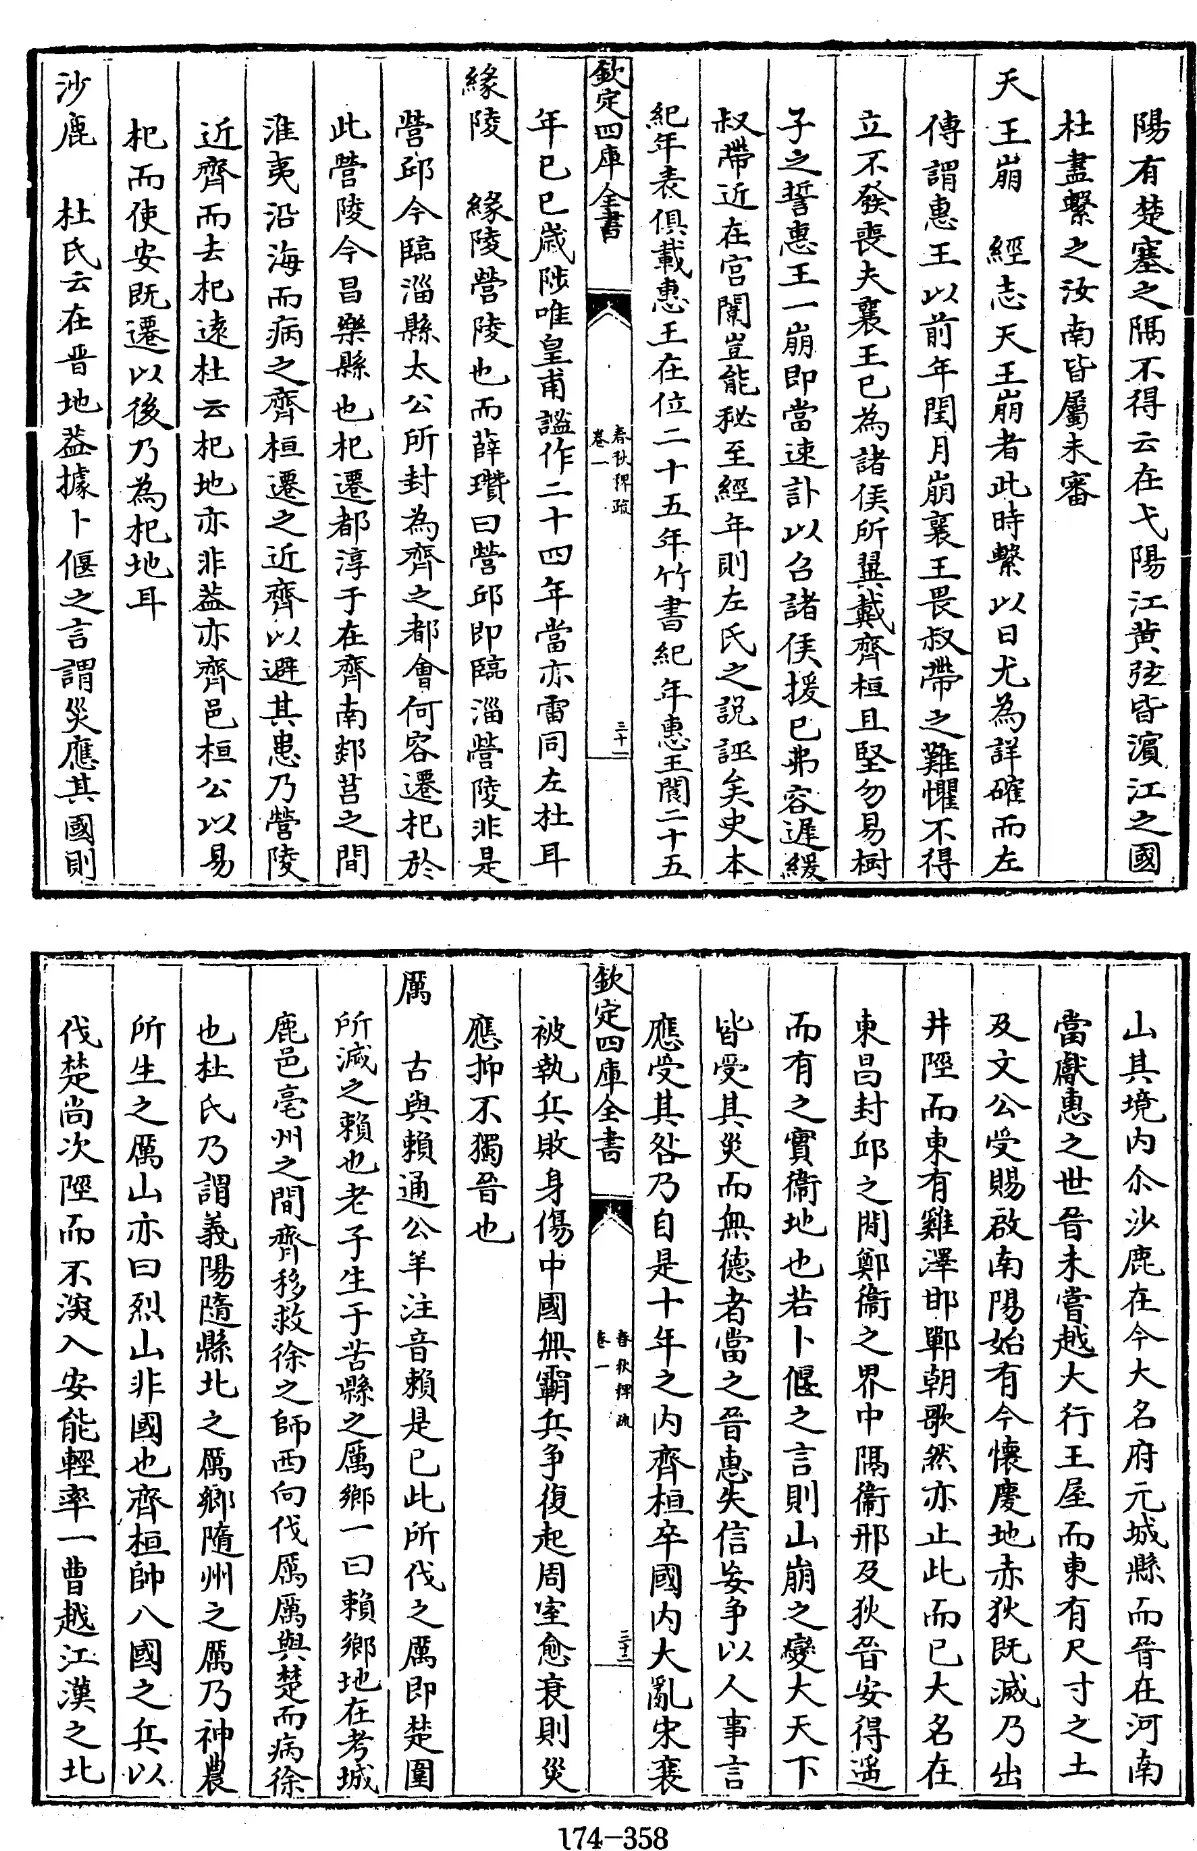 陽有楚塞之隔不得云在弋陽江黄弦皆濵江之國
杜盡繫之汝南皆屬未審
天王崩　經志天王崩者此時繫以日尤為詳確而左
傳謂惠王以前年閏月崩襄王畏叔帶之難懼不得
立不發喪夫襄王已為諸侯所翼戴齊桓且堅勿易樹
子之誓惠王一崩即當速訃以召諸侯援已弗容遲緩
叔帶近在宫闈豈能秘至經年則左氏之說誣矣史本
紀年表俱載惠王在位二十五年竹書紀年惠王閬二十五
欽定四庫全書
春秋稗疏
卷一
三十一
年已巳歲陟唯皇甫謐作二十四年當亦雷同左杜耳
緣陵　緣陵營陵也而薛瓚曰營邱即臨淄營陵非是
營邱今臨淄縣太公所封為齊之都會何容遷杞於
此營陵今昌樂縣也杞遷都淳于在齊南郯莒之間
淮夷沿海而病之齊桓遷之近齊以避其患乃營陵
近齊而去杞逺杜云杞地亦非葢亦齊邑桓公以易
杞而使安既遷以後乃為杞地耳
沙鹿　杜氏云在晉地葢據卜偃之言謂災應其國則
山其境内尒沙鹿在今大名府元城縣而晉在河南
當獻惠之世晉未嘗越大行王屋而東有尺寸之土
及文公受賜啟南陽始有今懷慶地赤狄既滅乃出
井陘而東有雞澤邯鄲朝歌然亦止此而已大名在
東昌封邱之間鄭衞之界中隔衞邢及狄晉安得遥
而有之實衞地也若卜偃之言則山崩之變大天下
皆受其災而無德者當之晉惠失信妄爭以人事言
應受其咎乃自是十年之内齊桓卒國内大亂宋襄
欽定四庫全書
春秋稗疏
卷一
三十二
被執兵敗身傷中國無霸兵爭復起周室愈衰則災
應抑不獨晉也
厲　古與賴通公羊注音賴是已此所伐之厲即楚圍
所滅之賴也老子生于苦縣之厲鄉一曰賴鄉地在考城
鹿邑亳州之間齊移救徐之師西向伐厲厲與楚而病徐
也杜氏乃謂義陽隨縣北之厲鄉隨州之厲乃神農
所生之厲山亦曰烈山非國也齊桓帥八國之兵以
伐楚尚次陘而不深入安能輕率一曹越江漢之北
174-358